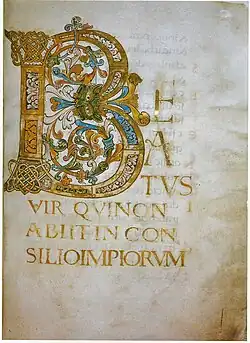 BE
A
TVS
VIR QVI NON
ABIIT IN CON
SILIO IMPIORVM